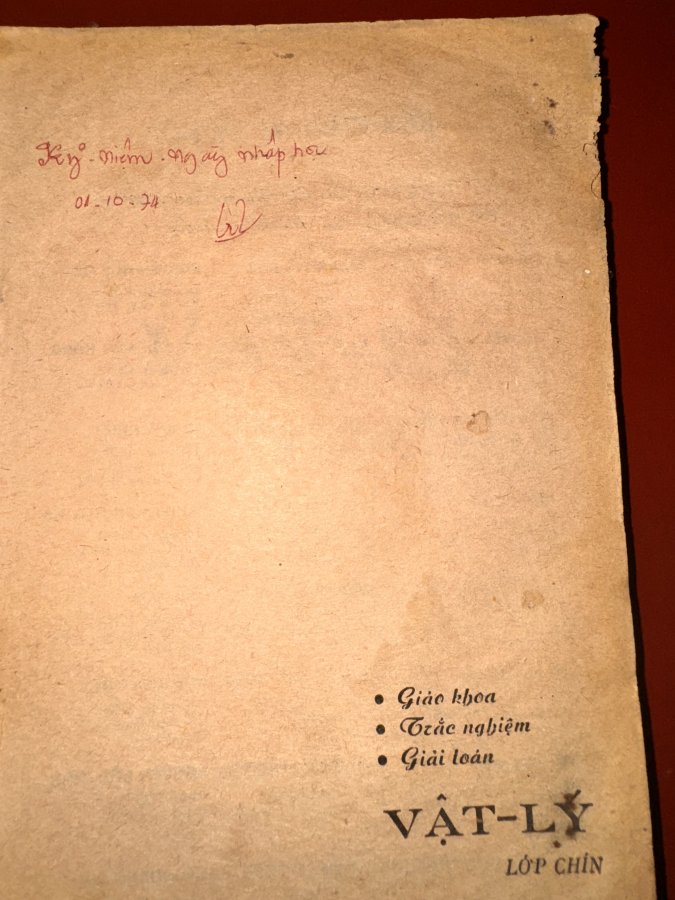 Kỷ - niệm - ngày nhập học
01 - 10 - 74
• Giáo khoa
• Trắc nghiệm
• Giải toán
VẬT-LÝ
LỚP CHÍN